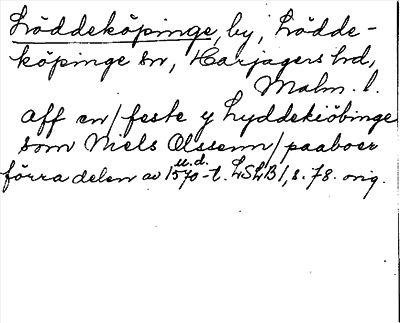 Löddeköpinge, by, Lödde-
köpinge sn, Harjagers hd,
Malm. l.
aff en/feste y Lyddekiöbinge
som Niels Olssenn/paaboer
u.d.
förra delen av 1570-t. LSLB 1, s. 78. orig.